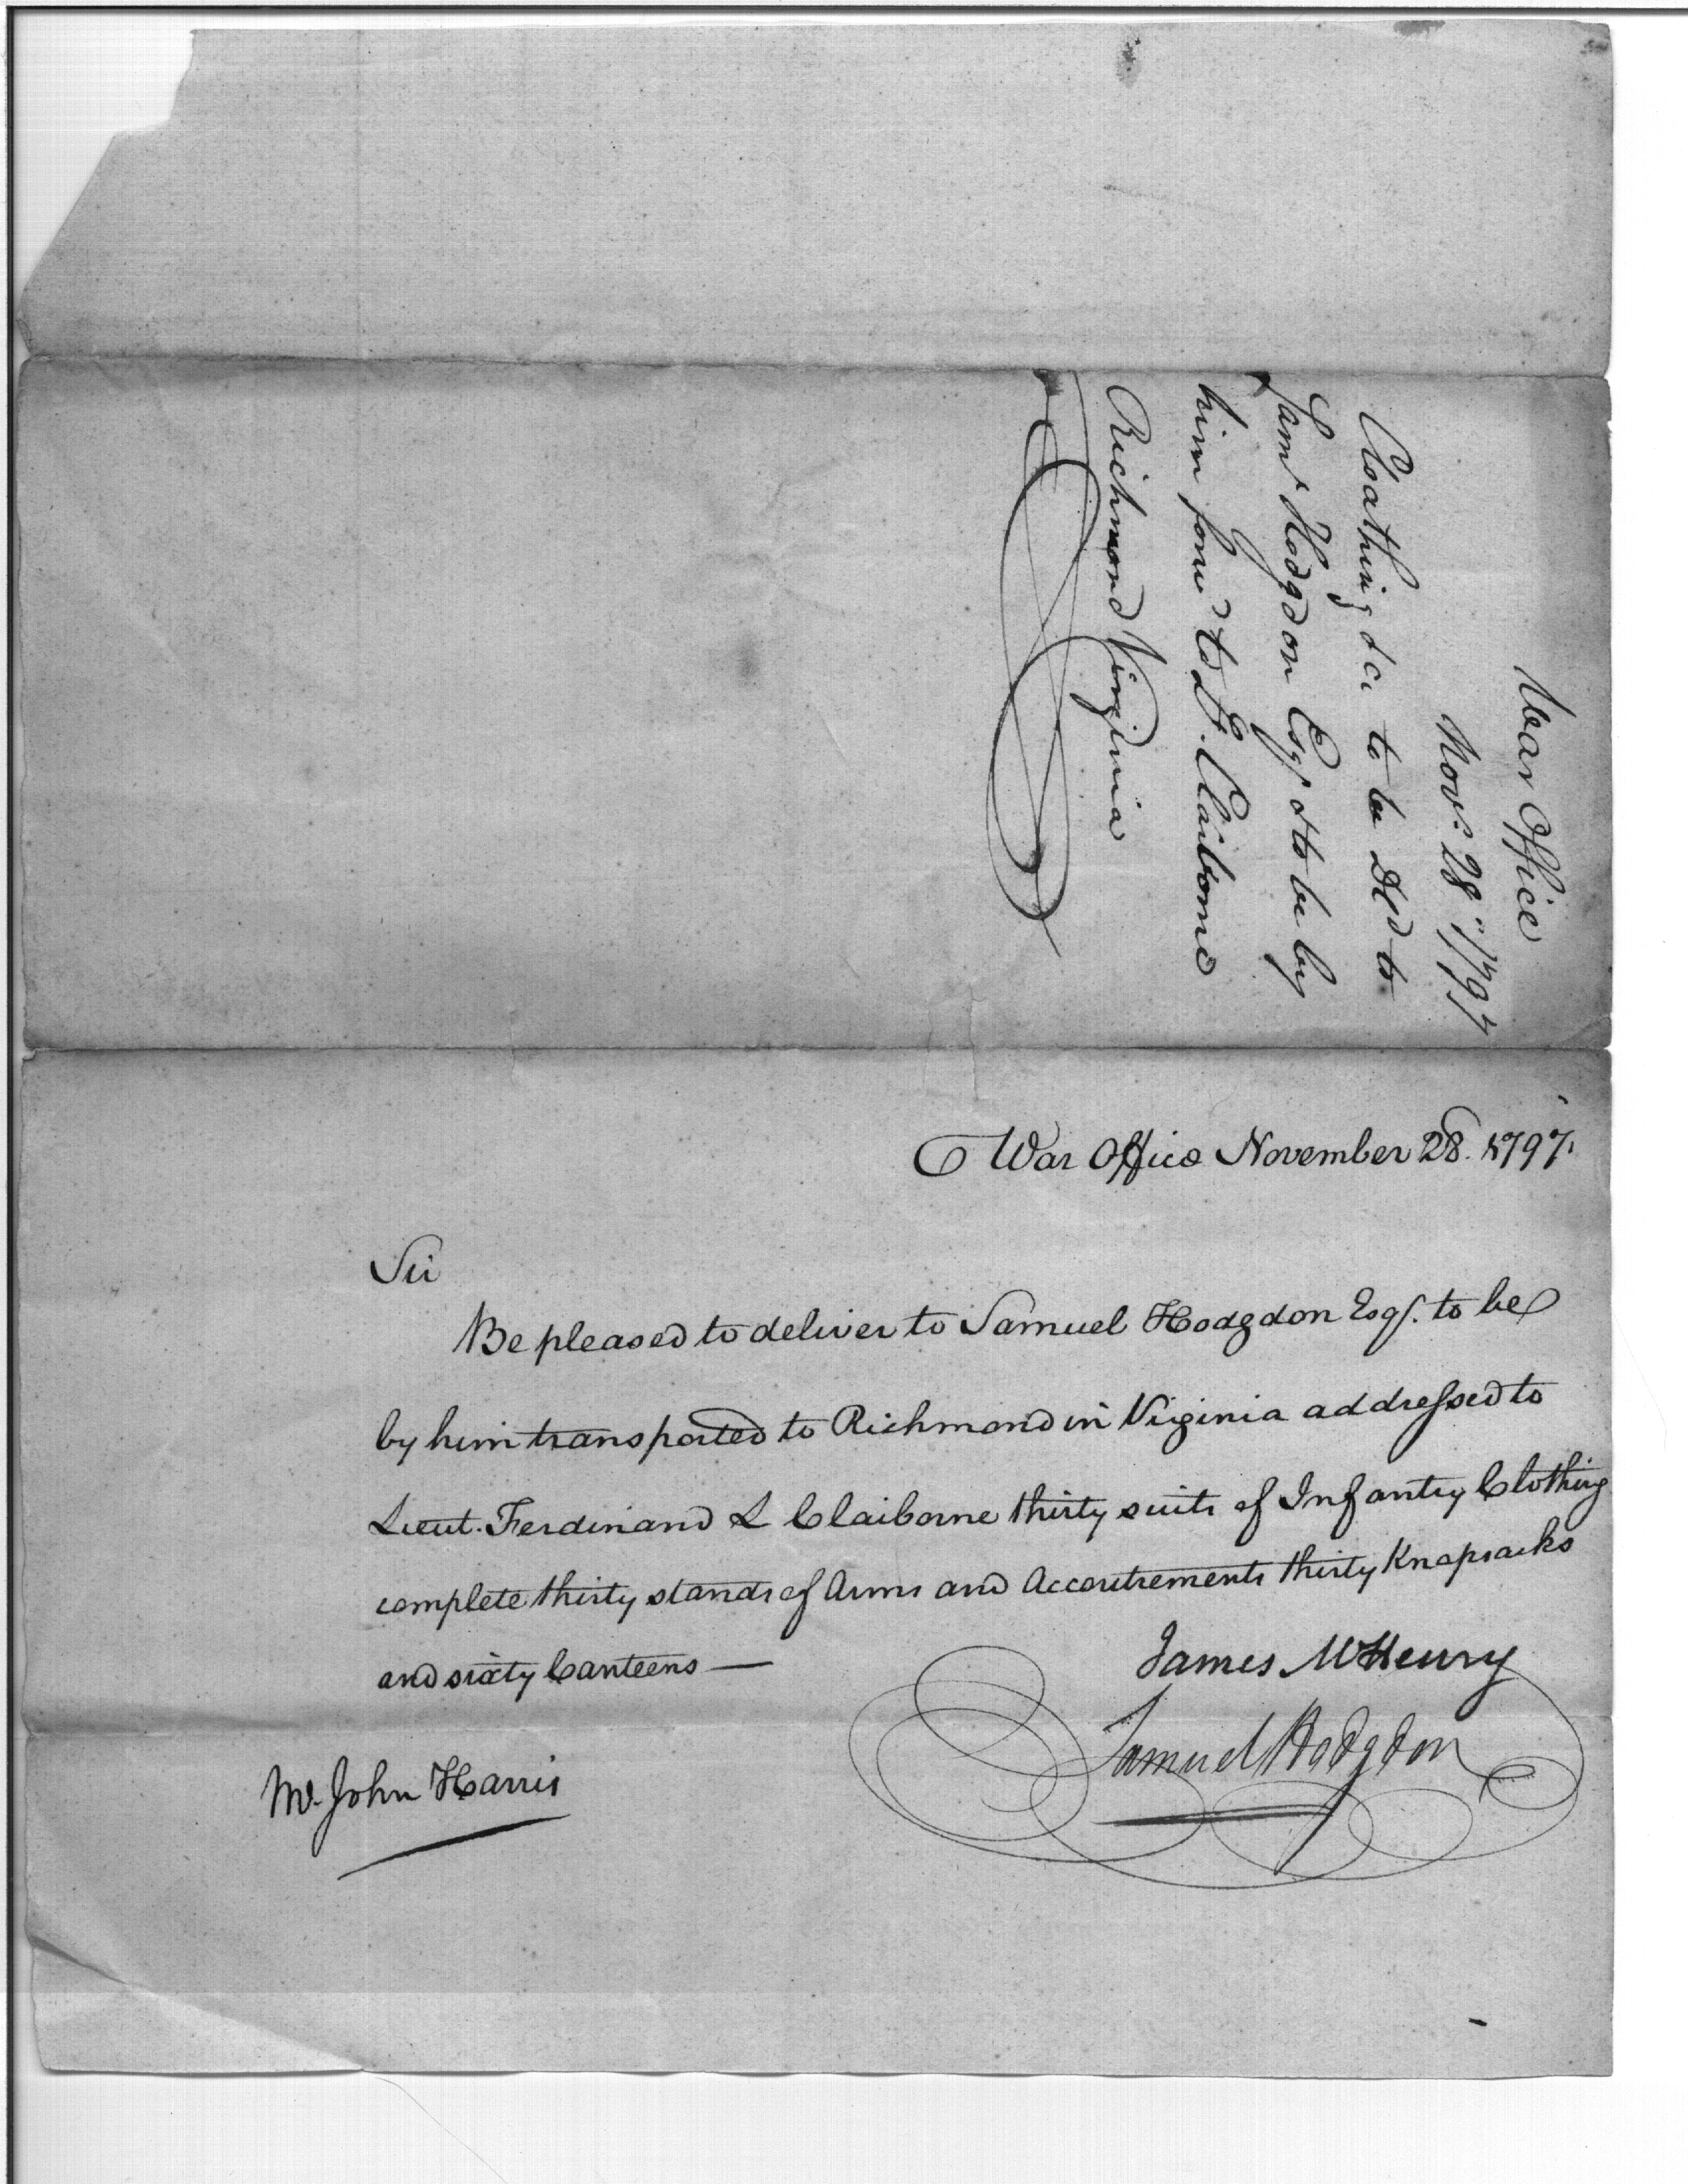 War Office
Nov.: 28th 1797
Cloathing &c. to be Ded to
Saml Hodgdon Esqr & to be by
him forwd to Lt. Claiborne
Richmond Virginia
War Office November 28. 1797.
Sir
Be pleased to deliver to Samuel Hodgdon Esqr. to be
by him transported to Richmond in Virginia addressed to
Lieut. Ferdinand L Claiborne thirty suits of Infantry Clothing
complete thirty stands of Arms and Accoutrements thirty Knapsacks
and sixty Canteens —
James McHenry
Samuel Hodgdon
Mr. John Harris